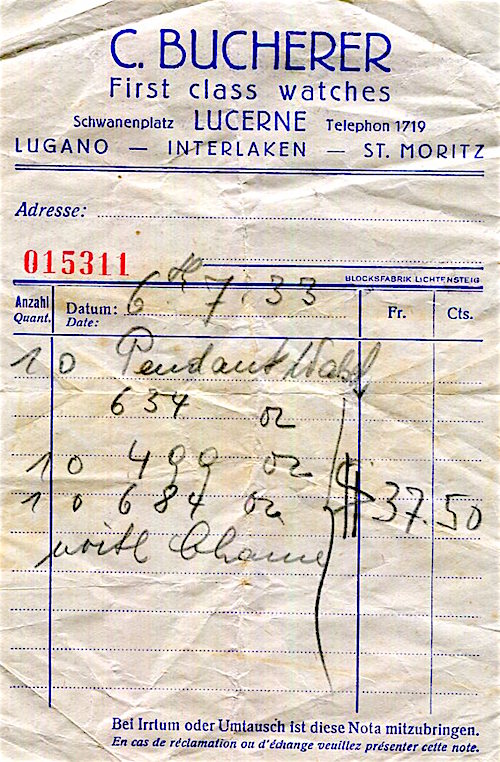 C. BUCHERER
First class watches
Schwanenplatz LUCERNE Telephon 1719
LUGANO — INTERLAKEN — ST. MORITZ
Adresse:
015311
BLOCKSFABRIK LICHTENSTEIG
Anzahl Datum: 6th 7.33 Fr. Cts.
Quant. Date:
1 0 Pendant
654 oz
1 0 499 oz
1 0 684 oz $ 37.50
with Chaine
Bei Irrtum oder Umtausch ist diese Nota mitzubringen.
En cas de réclamation ou d'échange veuillez présenter cette note.